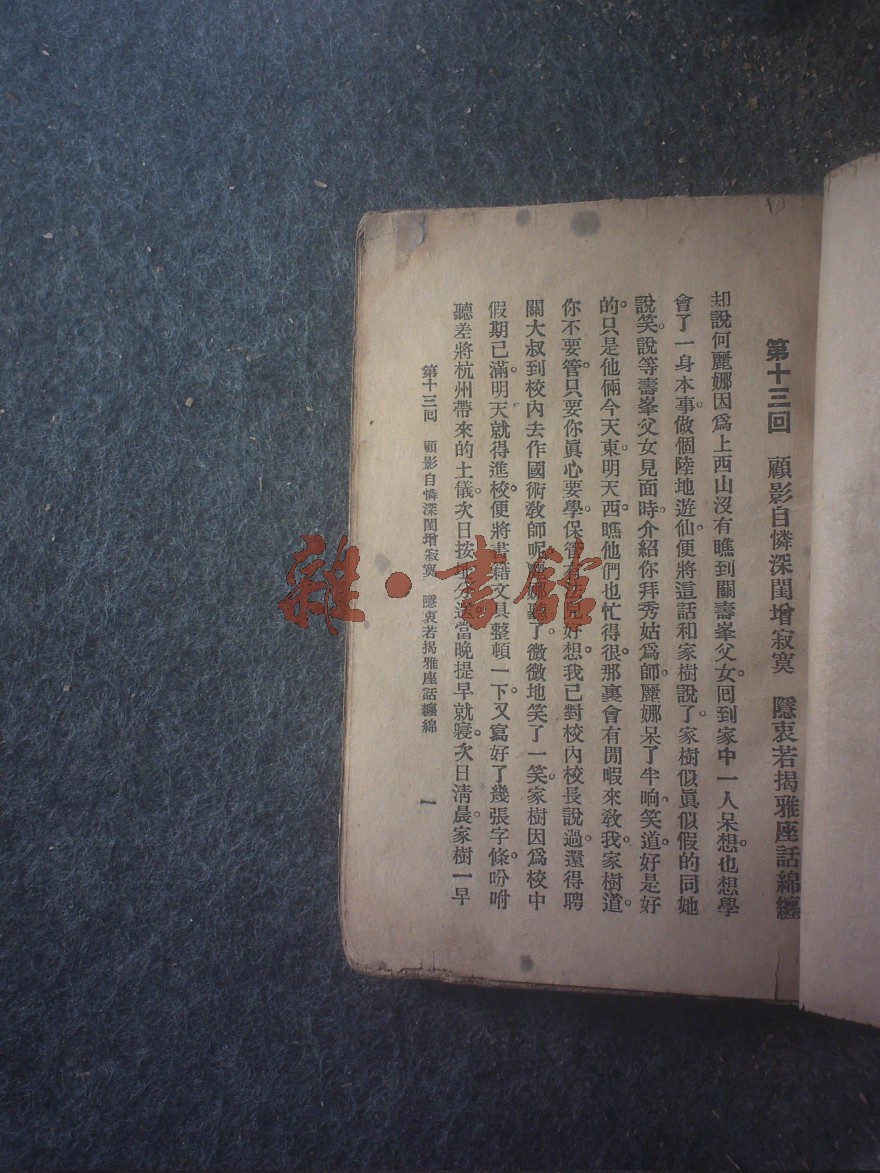 第十三回　顧影自憐深閨增寂寞　隱衷若揭雅座話綿纏
却說何麗娜因爲上西山沒有瞧到關壽峯父女。回到家中一人呆想。也想學
會了一身本事。做個陸地遊仙。便將這話和家樹說了。家樹似眞似假的同她
說笑。說等壽峯父女見面時。介紹你拜秀姑爲師。麗娜呆了半晌。笑道。好是好
的。只是他倆今天東。明天西。瞧他們也忙得很。那裏會有閒暇來敎我。家樹道。
你不要管。只要你眞心要學。保管有法兒好想。我已對校內校長說過。還得聘
關大叔到校內去作國術敎師呢。麗娜聽了。微微地笑了一笑。家樹因爲校中
假期已滿。明天就得進校。便將書籍文具整頓一下。又寫好了幾張字條。吩咐
聽差將杭州帶來的土儀。次日按址分送。當晚提早就寢。次日淸晨。家樹一早
第十三回　顧影自憐深閨增寂寞　隱衷若揭雅座話纏綿　一
雜·書館